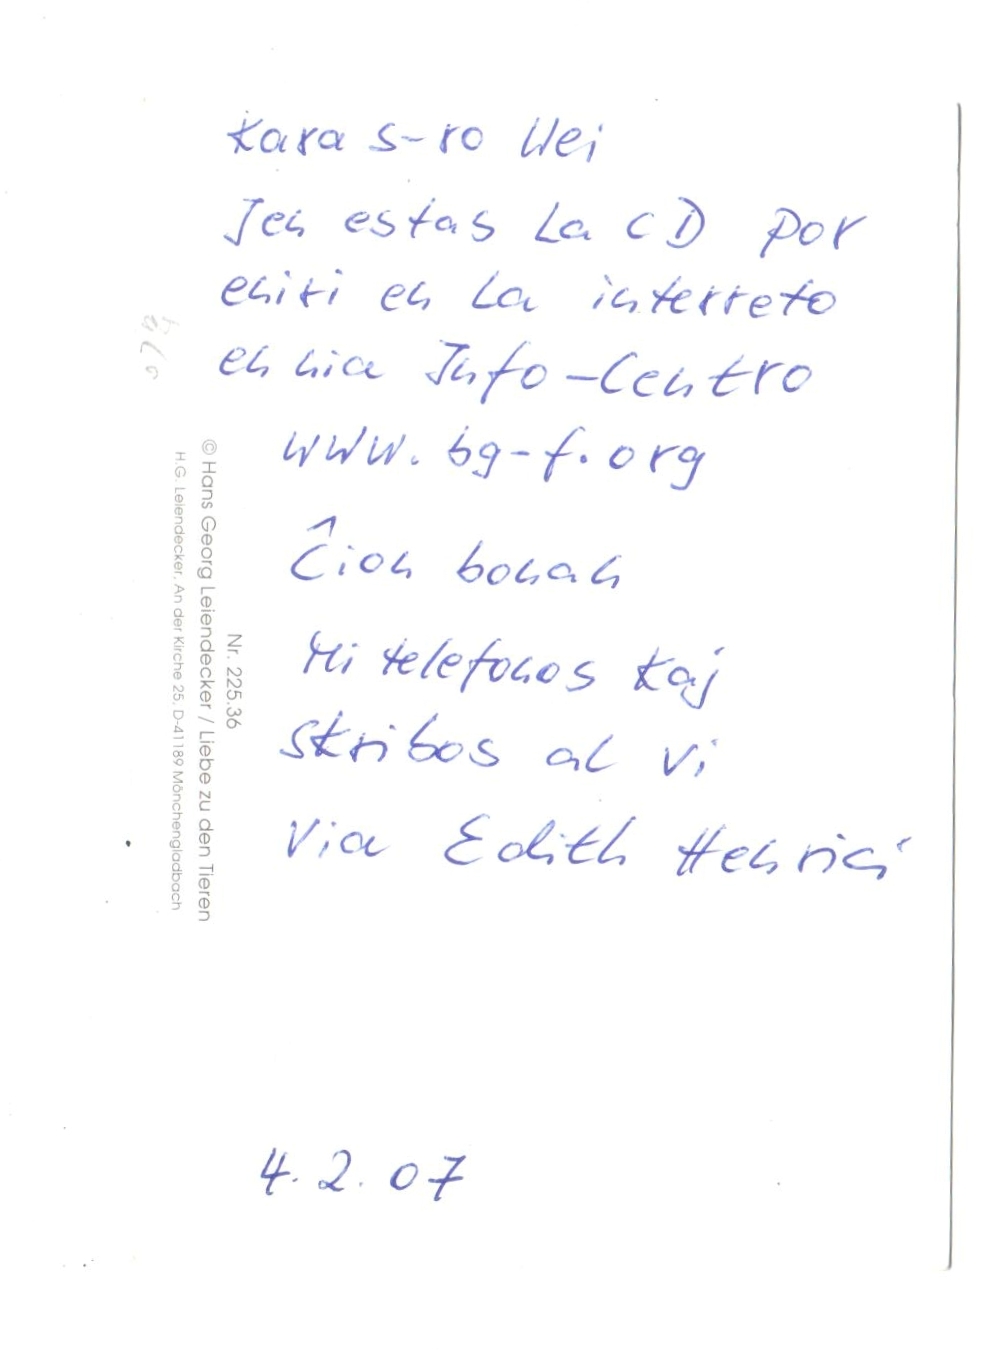 Kara s-ro Wei
Jen estas La CD por
eniri en La interreto
en nia Info-Centro
www.bg-f.org
Ĉion bonan
Mi telefonos kaj
skribos al vi
Via Edith Henrici
4.2.07
Nr. 225.36
© Hans Georg Leiendecker / Liebe zu den Tieren
H.G. Leiendecker, An der Kirche 25, D-41189 Mönchengladbach